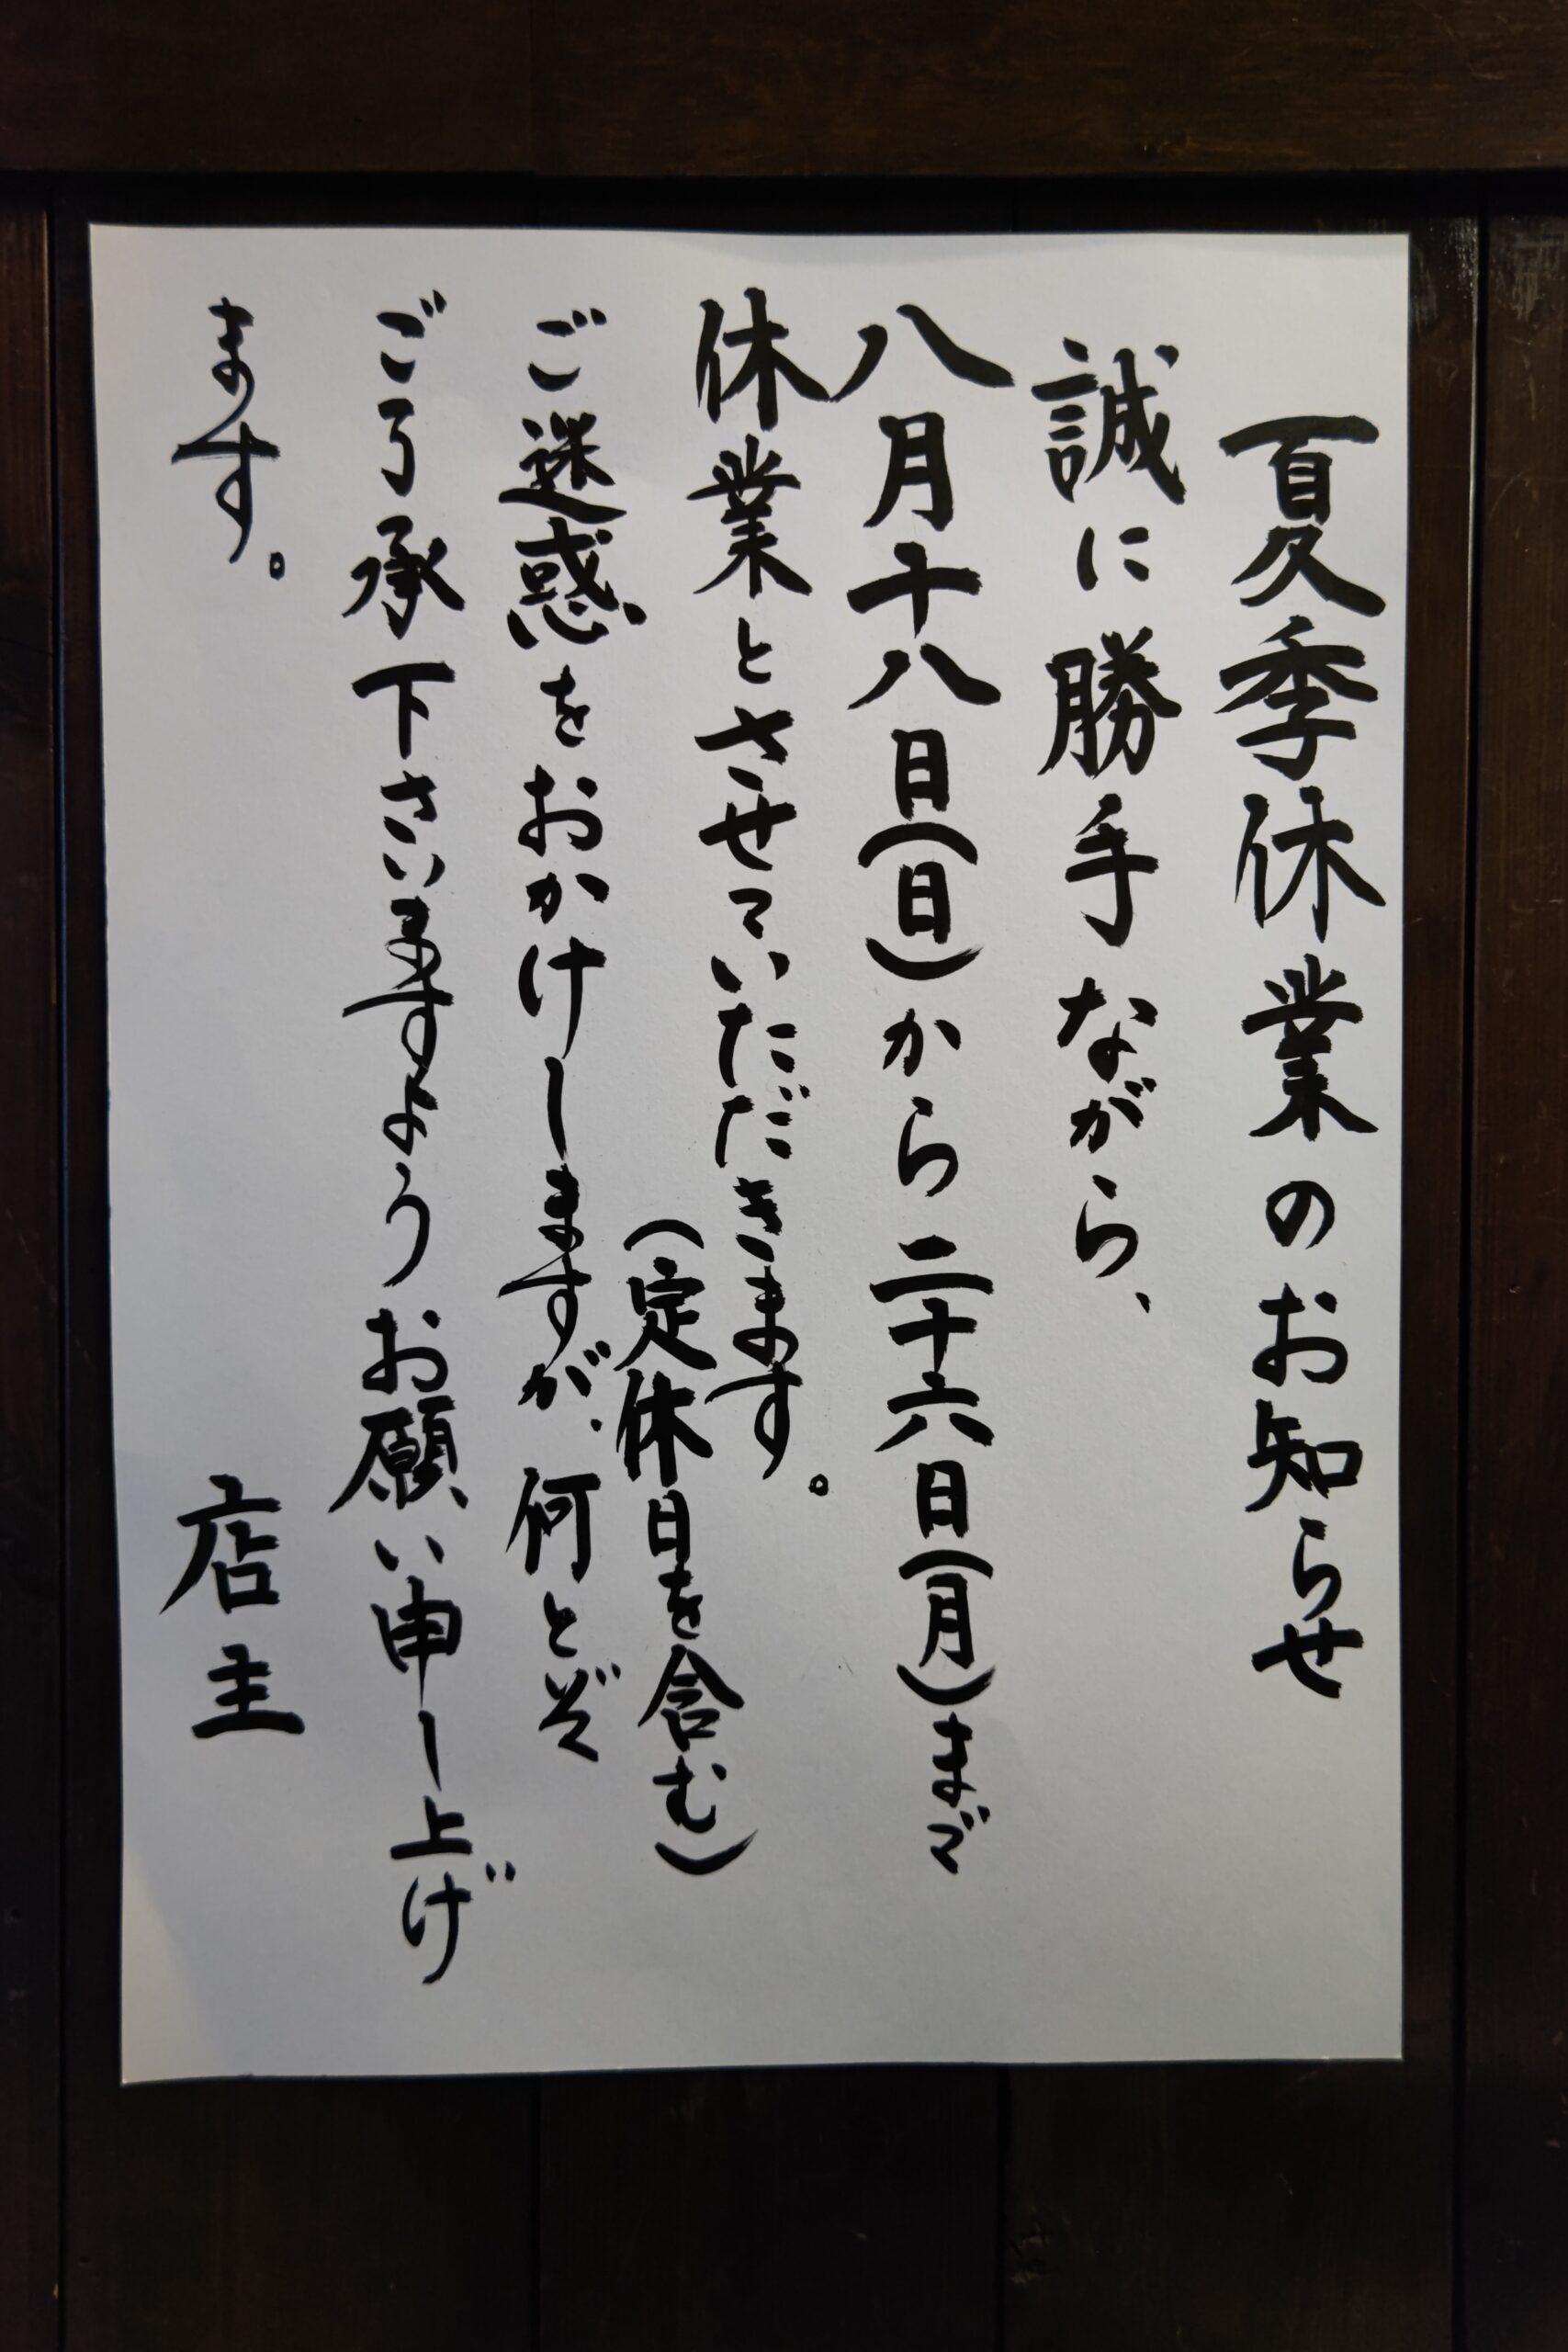 夏季休業のお知らせ
誠に勝手ながら、
八月十八日(日)から二十六日(月)まで
休業とさせていただきます。
(定休日を含む)
ご迷惑をおかけしますが、何とぞ
ご了承下さいますようお願い申し上げ
ます。
店主